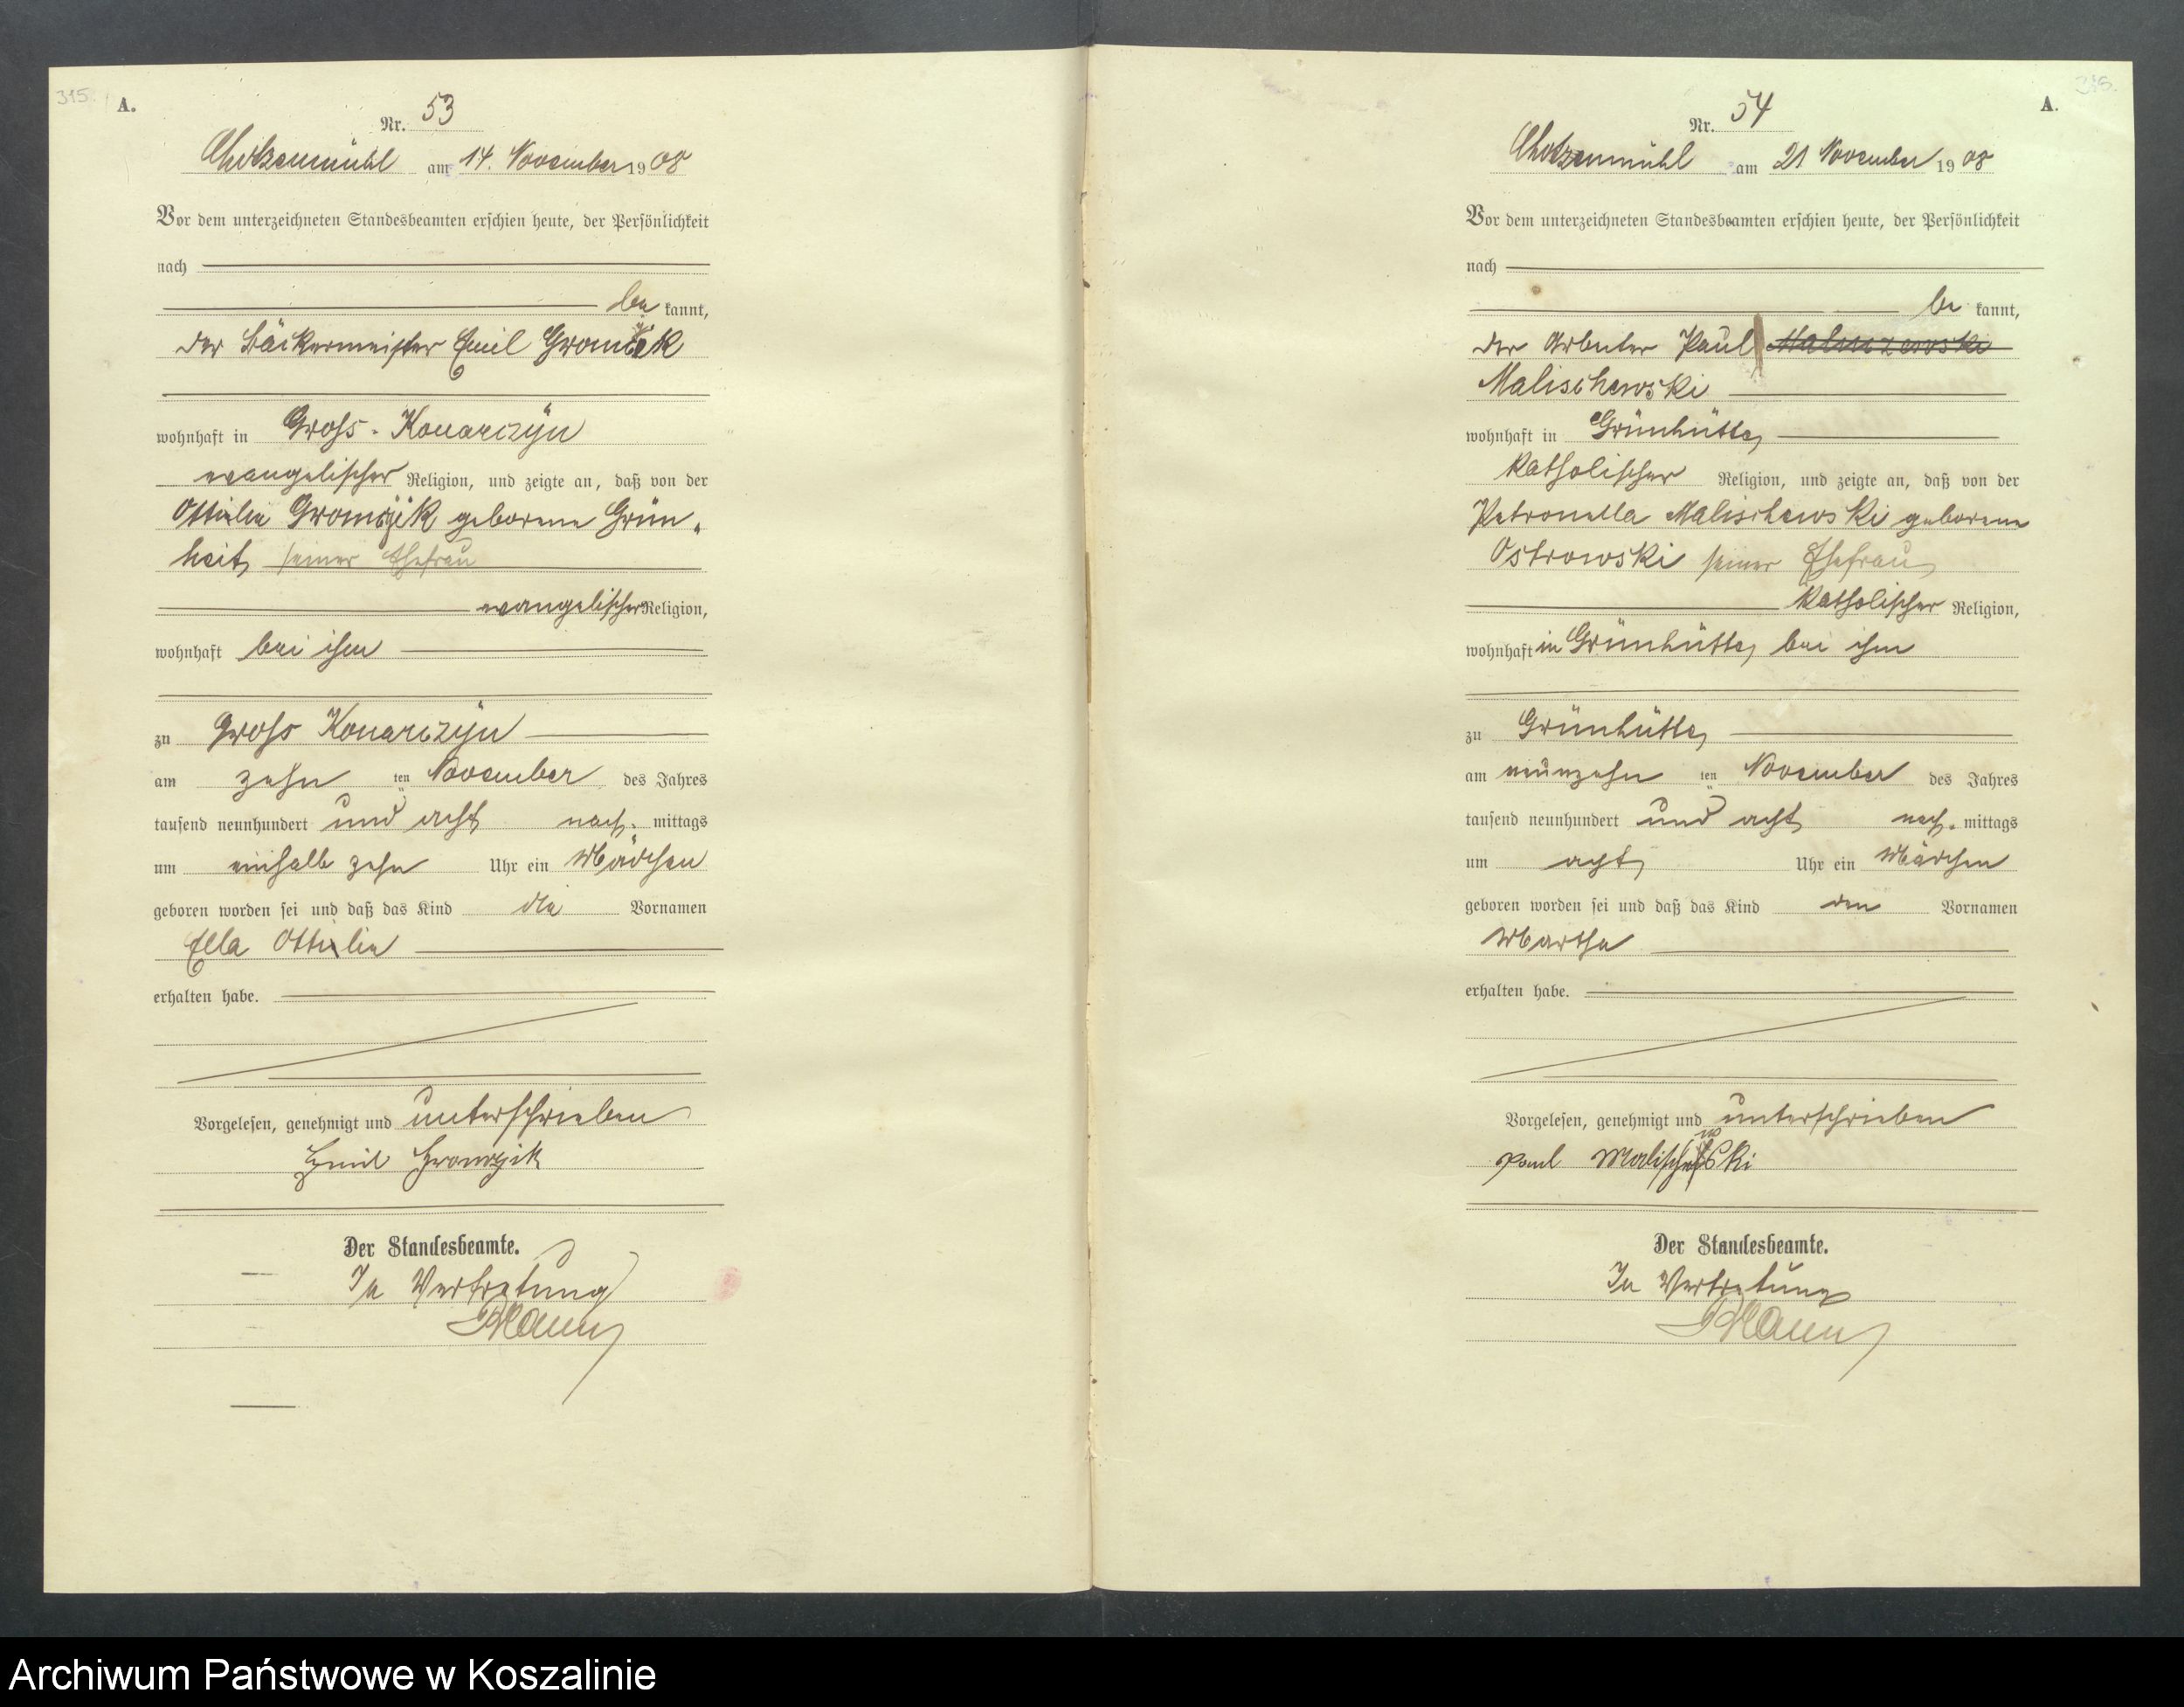 315.
A.
Nr. 53
Chotzenmühl am 14. November 1908
Vor dem unterzeichneten Standesbeamten erschien heute, der Persönlichkeit
nach
be kannt,
der Bäckermeister Emil
wohnhaft in Gross-Konarczyn
evangelischer Religion, und zeigte an, daß von der
Ottilie geborene Grün-
heit, seiner Ehefrau
evangelischer Religion,
wohnhaft bei ihm
zu Gross Konarczyn
am zehn ten November des Jahres
tausend neunhundert und acht nach mittags
um einhalb zehn Uhr ein Mädchen
geboren worden sei und daß das Kind die Vornamen
Ella Ottilie
erhalten habe.
Vorgelesen, genehmigt und unterschrieben
Emil
Der Standesbeamte.
In Vertretung
A.
Nr. 54
Chotzenmühl am 21 November 1908
Vor dem unterzeichneten Standesbeamten erschien heute, der Persönlichkeit
nach
be kannt,
der Arbeiter Paul
Malischewski
wohnhaft in Grünhütte,
katholischer Religion, und zeigte an, daß von der
Petronella Malischewski geborene
Ostrowski seiner Ehefrau,
katholischer Religion,
wohnhaft in Grünhütte, bei ihm
zu Grünhütte,
am neunzehn ten November des Jahres
tausend neunhundert und acht nach mittags
um acht Uhr ein Mädchen
geboren worden sei und daß das Kind den Vornamen
Martha
erhalten habe.
Vorgelesen, genehmigt und unterschrieben
Paul Malischewski
Der Standesbeamte.
In Vertretung
Archiwum Państwowe w Koszalinie